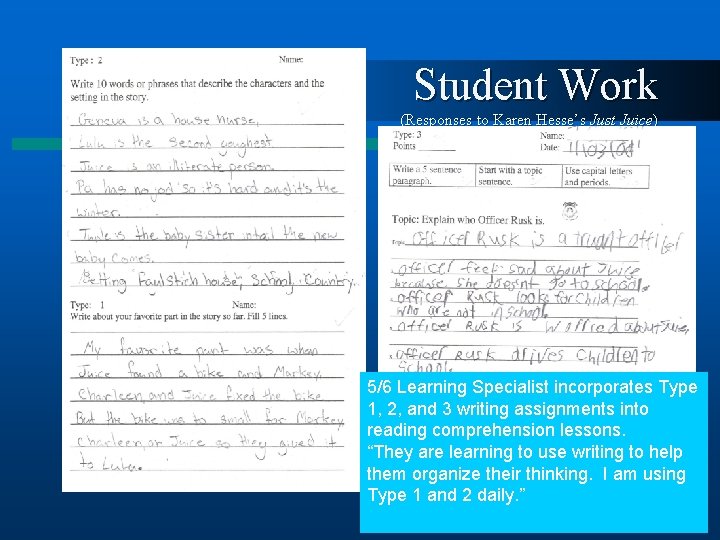 Student Work
(Responses to Karen Hesse's Just Juice)
Type: 2 Name:
Write 10 words or phrases that describe the characters and the
setting in the story.
Geneva is a house nurse,
Lulu is the second youghest
Juice is an illiterate person.
Pa has no jod so it's hard and it's the
winter.
is the baby sister intail the new
baby comes.
Setting Faulstich house, School, Country.
Type: 1 Name:
Write about your favorite part in the story so far. Fill 5 lines.
My favorite part was when
Juice found a bike and Markey,
Charleen, and Juice fixed the bike.
But the bike was to small for Markey
Charleen, or Juice so they gived it
to Lulu.
Type: 3 Name:
Points Date: 11/03/01
Write a 5 sentence
paragraph.
Start with a topic
sentence.
Use capital letters
and periods.
Topic: Explain who Officer Rusk is.
Officer Rusk is a truant officer
officer feel sad about Juice
because she doesn't go to school.
officer Rusk looks for Children
who are not in School.
officer Rusk is worried about Juice
officer Rusk drives Children to
School.
5/6 Learning Specialist incorporates Type
1, 2, and 3 writing assignments into
reading comprehension lessons.
“They are learning to use writing to help
them organize their thinking. I am using
Type 1 and 2 daily.”